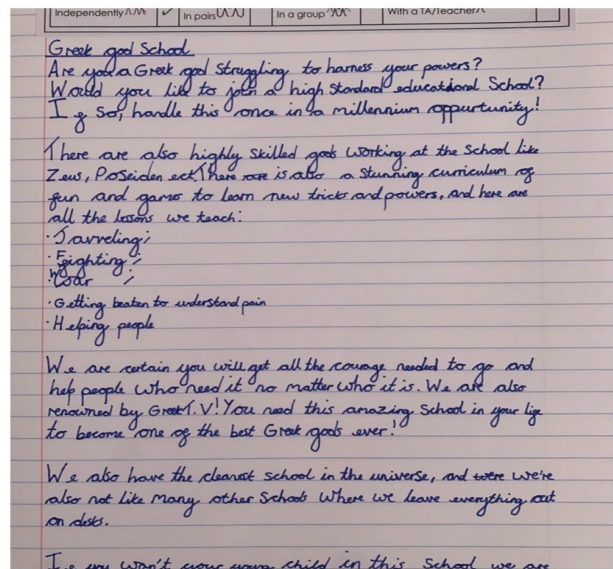 Independently In pairs In a group With a TA/Teacher
Greek god School
Are you a Greek god Struggling to harness your powers?
Would you like to join a high Standard educational School?
If So, handle this once in a millennium oppurtunity!
There are also highly skilled gods working at the School like
Zeus, PoSeiden ect. There is also a Stunning curriculum of
fun and games to learn new tricks and powers, and here are
all the lessons we teach:
· Javveling;
· Fighting;
· War;
· Getting beaten to understand pain
· Helping people
We are certain you will get all the courage needed to go and
help people who need it no matter who it is. We are also
renowned by Greek T.V! You need this amazing School in your life
to become one of the best Greek gods ever!
We also have the cleanest school in the universe, and were we're
also not like many other Schools where we leave everything out
on desks.
If you won't your young child in this School we are